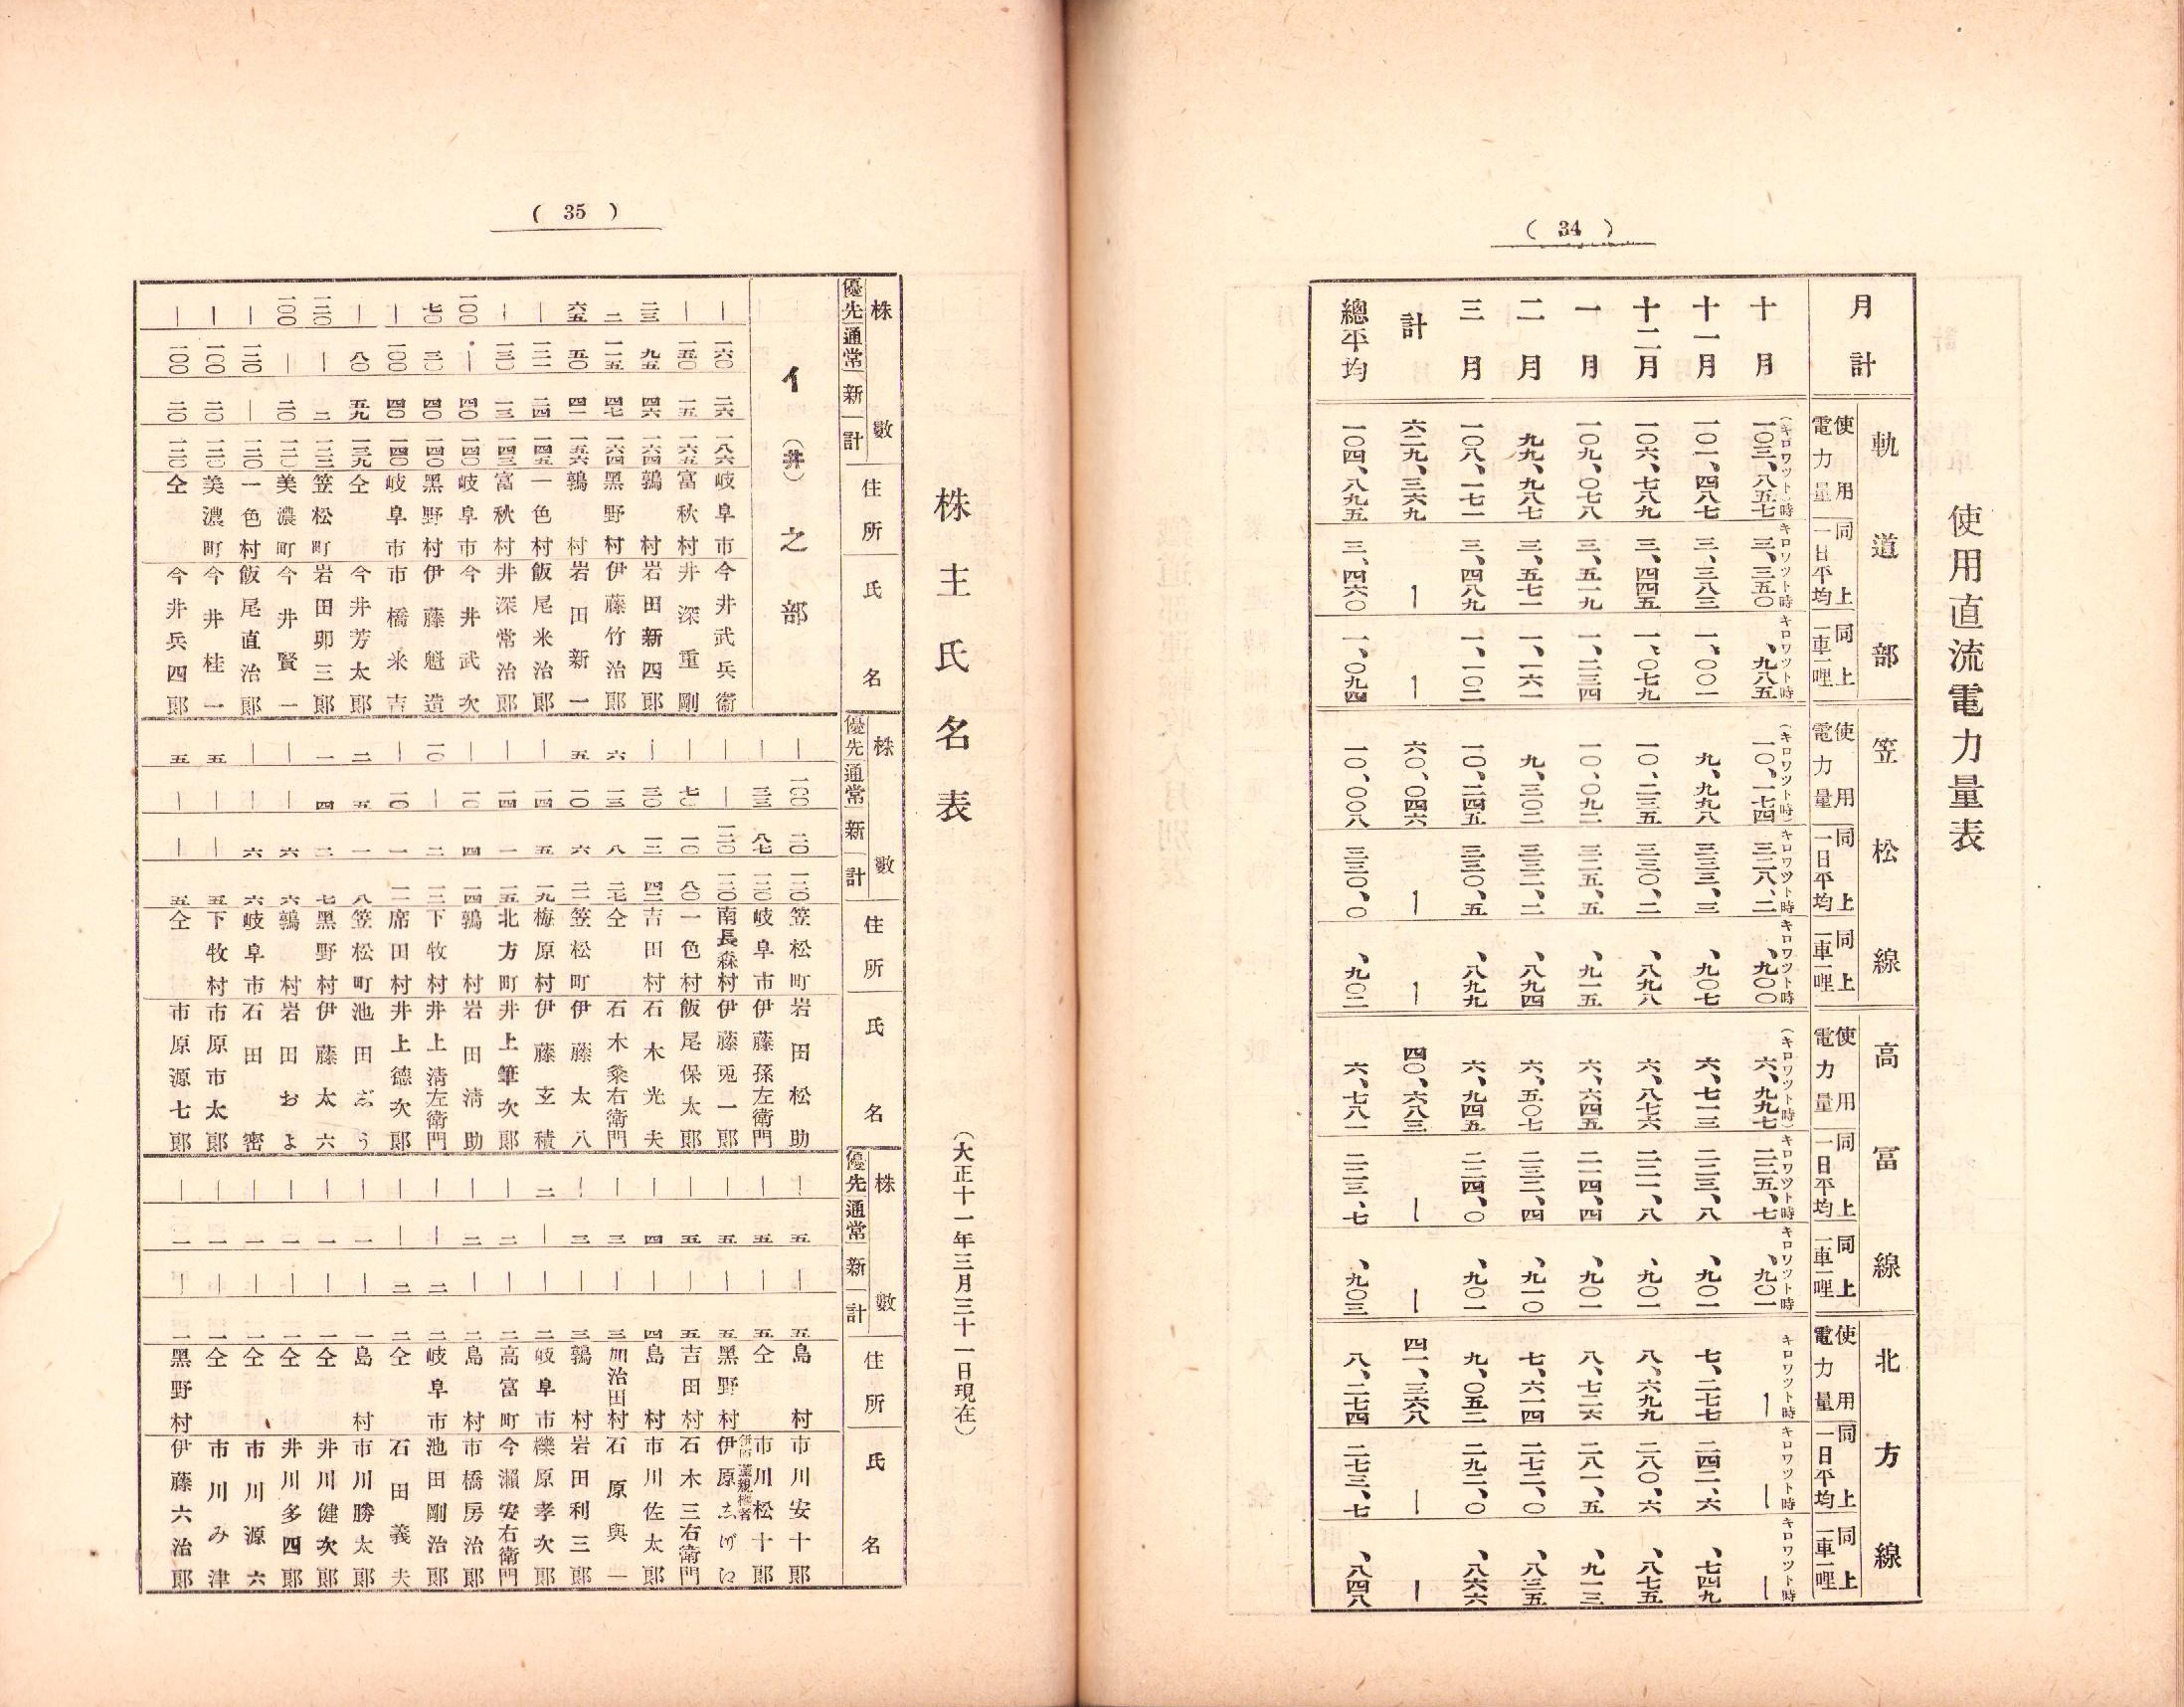 ( 34 )
使用直流電力量表
月計 軌道部 笠松線 高冨線 北方線
使用電力量 同上一日平均 同上一車一哩 使用電力量 同上一日平均 同上一車一哩 使用電力量 同上一日平均 同上一車一哩 使用電力量 同上一日平均 同上一車一哩
(キロワツト時) キロワツト時 キロワツト時 (キロワツト時) キロワツト時 キロワツト時 (キロワツト時) キロワツト時 キロワツト時 キロワツト時 キロワツト時 キロワツト時
十月 一〇三、八五七 三、三五〇 、九八五 一〇、一七四 三二八、二 、九〇〇 六、九九七 二二五、七 、九〇一 | | |
十一月 一〇一、四八七 三、三八三 一、〇〇一 九、九九八 三三三、三 、九〇七 六、七一三 二二三、八 、九〇一 七、二七七 二四二、六 、七四九
十二月 一〇六、七八九 三、四四五 一、〇七九 一〇、二三五 三三〇、二 、八九八 六、八七六 二二一、八 、九〇一 八、六九九 二八〇、六 、八七五
一月 一〇九、〇七八 三、五一九 一、二三四 一〇、〇九二 三二五、五 、九一五 六、六四五 二一四、四 、九〇一 八、七二六 二八一、五 、九一三
二月 九九、九八七 三、五七一 一、一六一 九、三〇二 三三二、二 、八九四 六、五〇七 二三二、四 、九一〇 七、六一四 二七二、〇 、八三五
三月 一〇八、一七一 三、四八九 一、一〇二 一〇、二四五 三三〇、五 、八九九 六、九四五 二二四、〇 、九〇一 九、〇五二 二九二、〇 、八六六
計 六二九、三六九 | | 六〇、〇四六 | | 四〇、六八三 | | 四一、三六八 | |
總平均 一〇四、八九五 三、四六〇 一、〇九四 一〇、〇〇八 三三〇、〇 、九〇二 六、七八一 二二三、七 、九〇三 八、二七四 二七三、七 、八四八
( 35 )
株主氏名表
(大正十一年三月三十一日現在)
株數 優先 通常 新 計 住所 氏名
イ(井)之部
| 一六〇 二六 一八六 岐阜市 今井武兵衞
| 一五〇 一五 一六五 富秋村 井深重剛
二三 九五 四六 一六四 鶉村 岩田新四郞
二 一一五 四七 一六四 黑野村 伊藤竹治郞
六五 五〇 四一 一五六 鶉村 岩田新一
| 一二一 二四 一四五 一色村 飯尾米治郞
| 一三〇 一三 一四三 富秋村 井深常治郞
一〇〇 | 四〇 一四〇 岐阜市 今井武次
七〇 三〇 四〇 一四〇 黑野村 伊藤魁造
| 一〇〇 四〇 一四〇 岐阜市 市橋米吉
| 八〇 五九 一三九 仝 今井芳太郞
一二〇 | 二 一二二 笠松町 岩田卯三郞
一〇〇 | 二〇 一二〇 美濃町 今井賢一
| 一二〇 | 一二〇 一色村 飯尾直治郞
| 一〇〇 二〇 一二〇 美濃町 今井桂一
| 一〇〇 二〇 一二〇 仝 今井兵四郞
株數 優先 通常 新 計 住所 氏名
| 一〇〇 二〇 一二〇 笠松町 岩田松助
| 三三 八七 一二〇 岐阜市 伊藤孫左衞門
| | 一二〇 一二〇 南長森村 伊藤兎一郞
| 七〇 一〇 八〇 一色村 飯尾保太郞
| 三〇 一二 四二 吉田村 石木光夫
六 一三 八 二七 仝 石木粂右衞門
五 一〇 六 二一 笠松町 伊藤太八
| 一四 五 一九 梅原村 伊藤玄積
| 一四 一 一五 北方町 井上筆次郞
| 一〇 四 一四 鶉村 岩田淸助
一〇 | 二 一二 下牧村 井上淸左衞門
| 一〇 一 一一 席田村 井上德次郞
二 五 一 八 笠松町 池田ゑう
一 四 二 七 黑野村 伊藤太六
| | 六 六 鶉村 岩田およ
| | 六 六 岐阜市 石田密
五 | | 五 下牧村 市原市太郞
五 | | 五 仝 市原源七郞
株數 優先 通常 新 計 住所 氏名
| 五 | 五 島村 市川安十郞
| 五 | 五 仝 市川松十郞
| 五 | 五 黑野村 伊原
| 五 | 五 吉田村 石木三右衞門
| 四 | 四 島村 市川佐太郞
| 三 | 三 加治田村 石原與一
| 三 | 三 鶉村 岩田利三郞
二 | | 二 岐阜市 櫟原孝次郞
| 二 | 二 高富町 今瀨安右衞門
| 二 | 二 島村 市橋房治郞
| | 二 二 岐阜市 池田剛治郞
| | 二 二 仝 石田義夫
| 一 | 一 島村 市川勝太郞
| 一 | 一 仝 井川健次郞
| 一 | 一 仝 井川多四郞
| 一 | 一 仝 市川源六
| 一 | 一 仝 市川み津
| 一 | 一 黑野村 伊藤六治郞